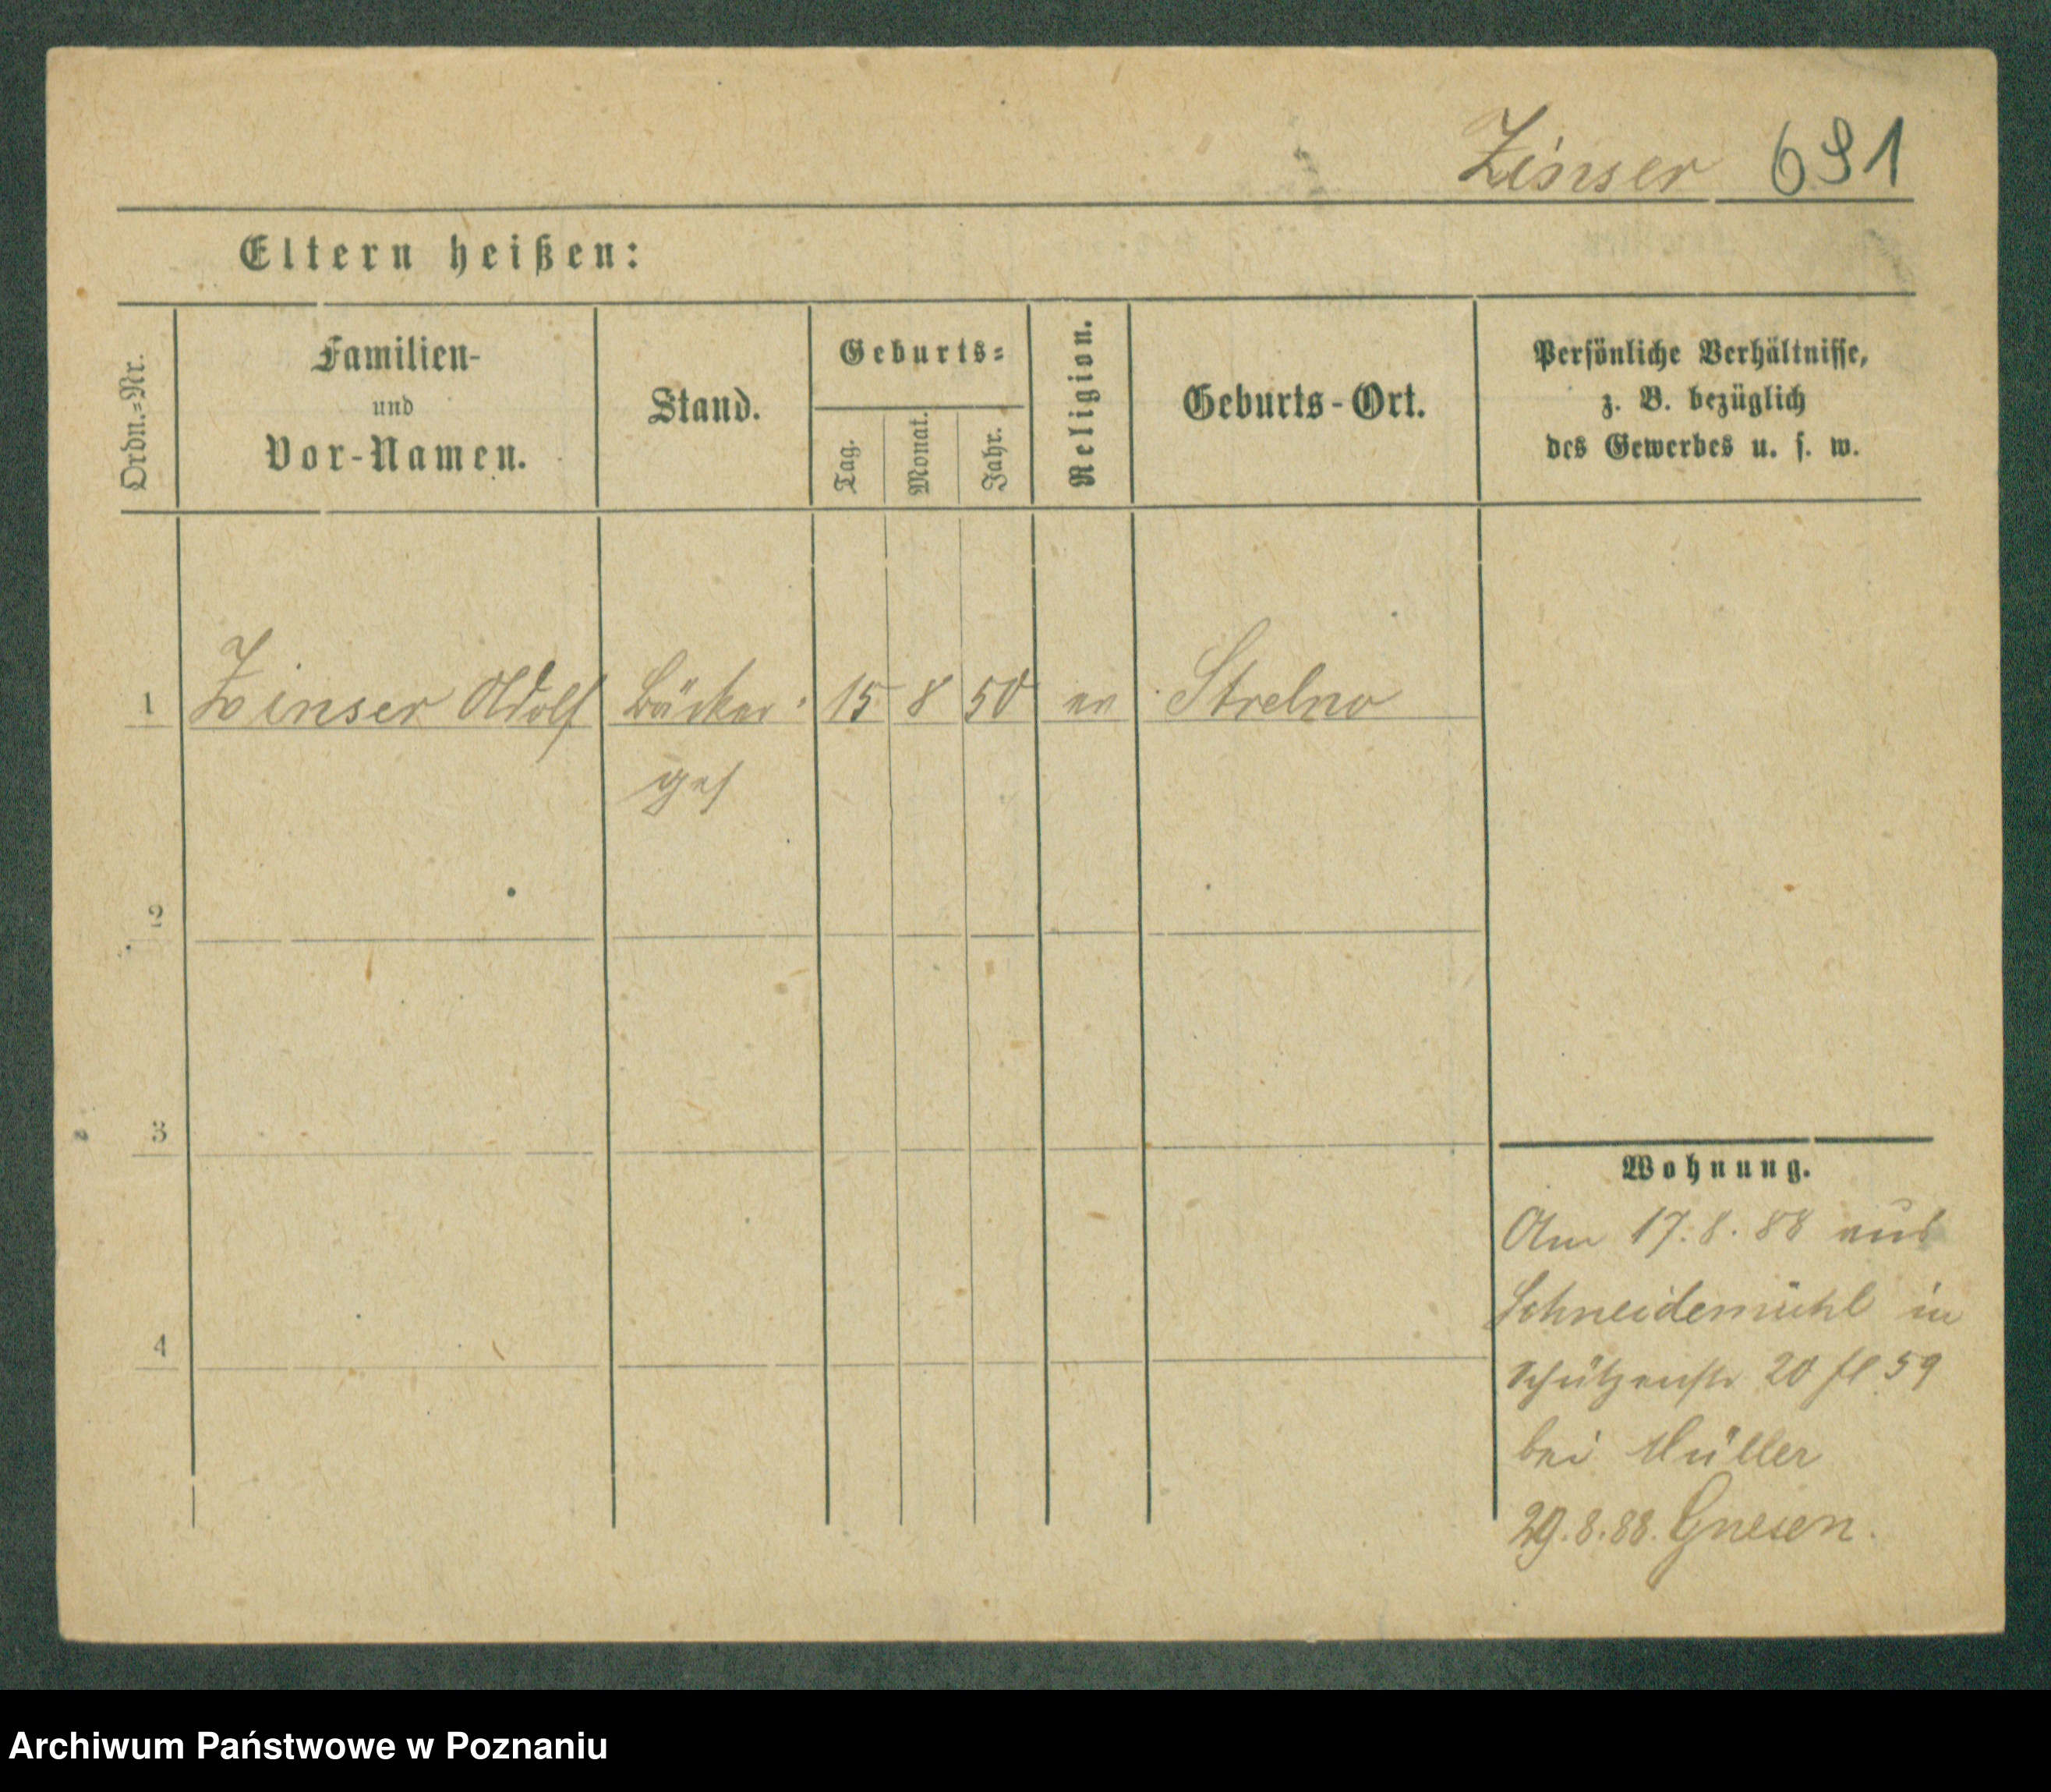 Zinser 691
Eltern heißen:
Ordn.=Nr.
Familien-
und
Vor-Namen.
Stand.
Geburts=
Tag.
Monat.
Jahr.
Religion.
Geburts-Ort.
Persönliche Verhältnisse,
z. B. bezüglich
des Gewerbes u. s. w.
1 Zinser Adolf Bäcker 15 8 50 ev Strelno
ges
2
3
4
Wohnung.
Am 17.8.88 aus
Schneidemühl in
Schützenstr 20 59
bei Müller
29.8.88. Gnesen.
Archiwum Państwowe w Poznaniu